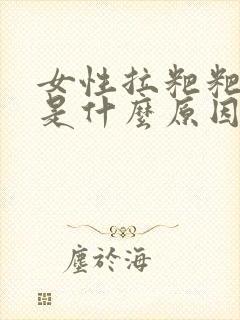 女性拉粑粑
是什麼原因
塵於海